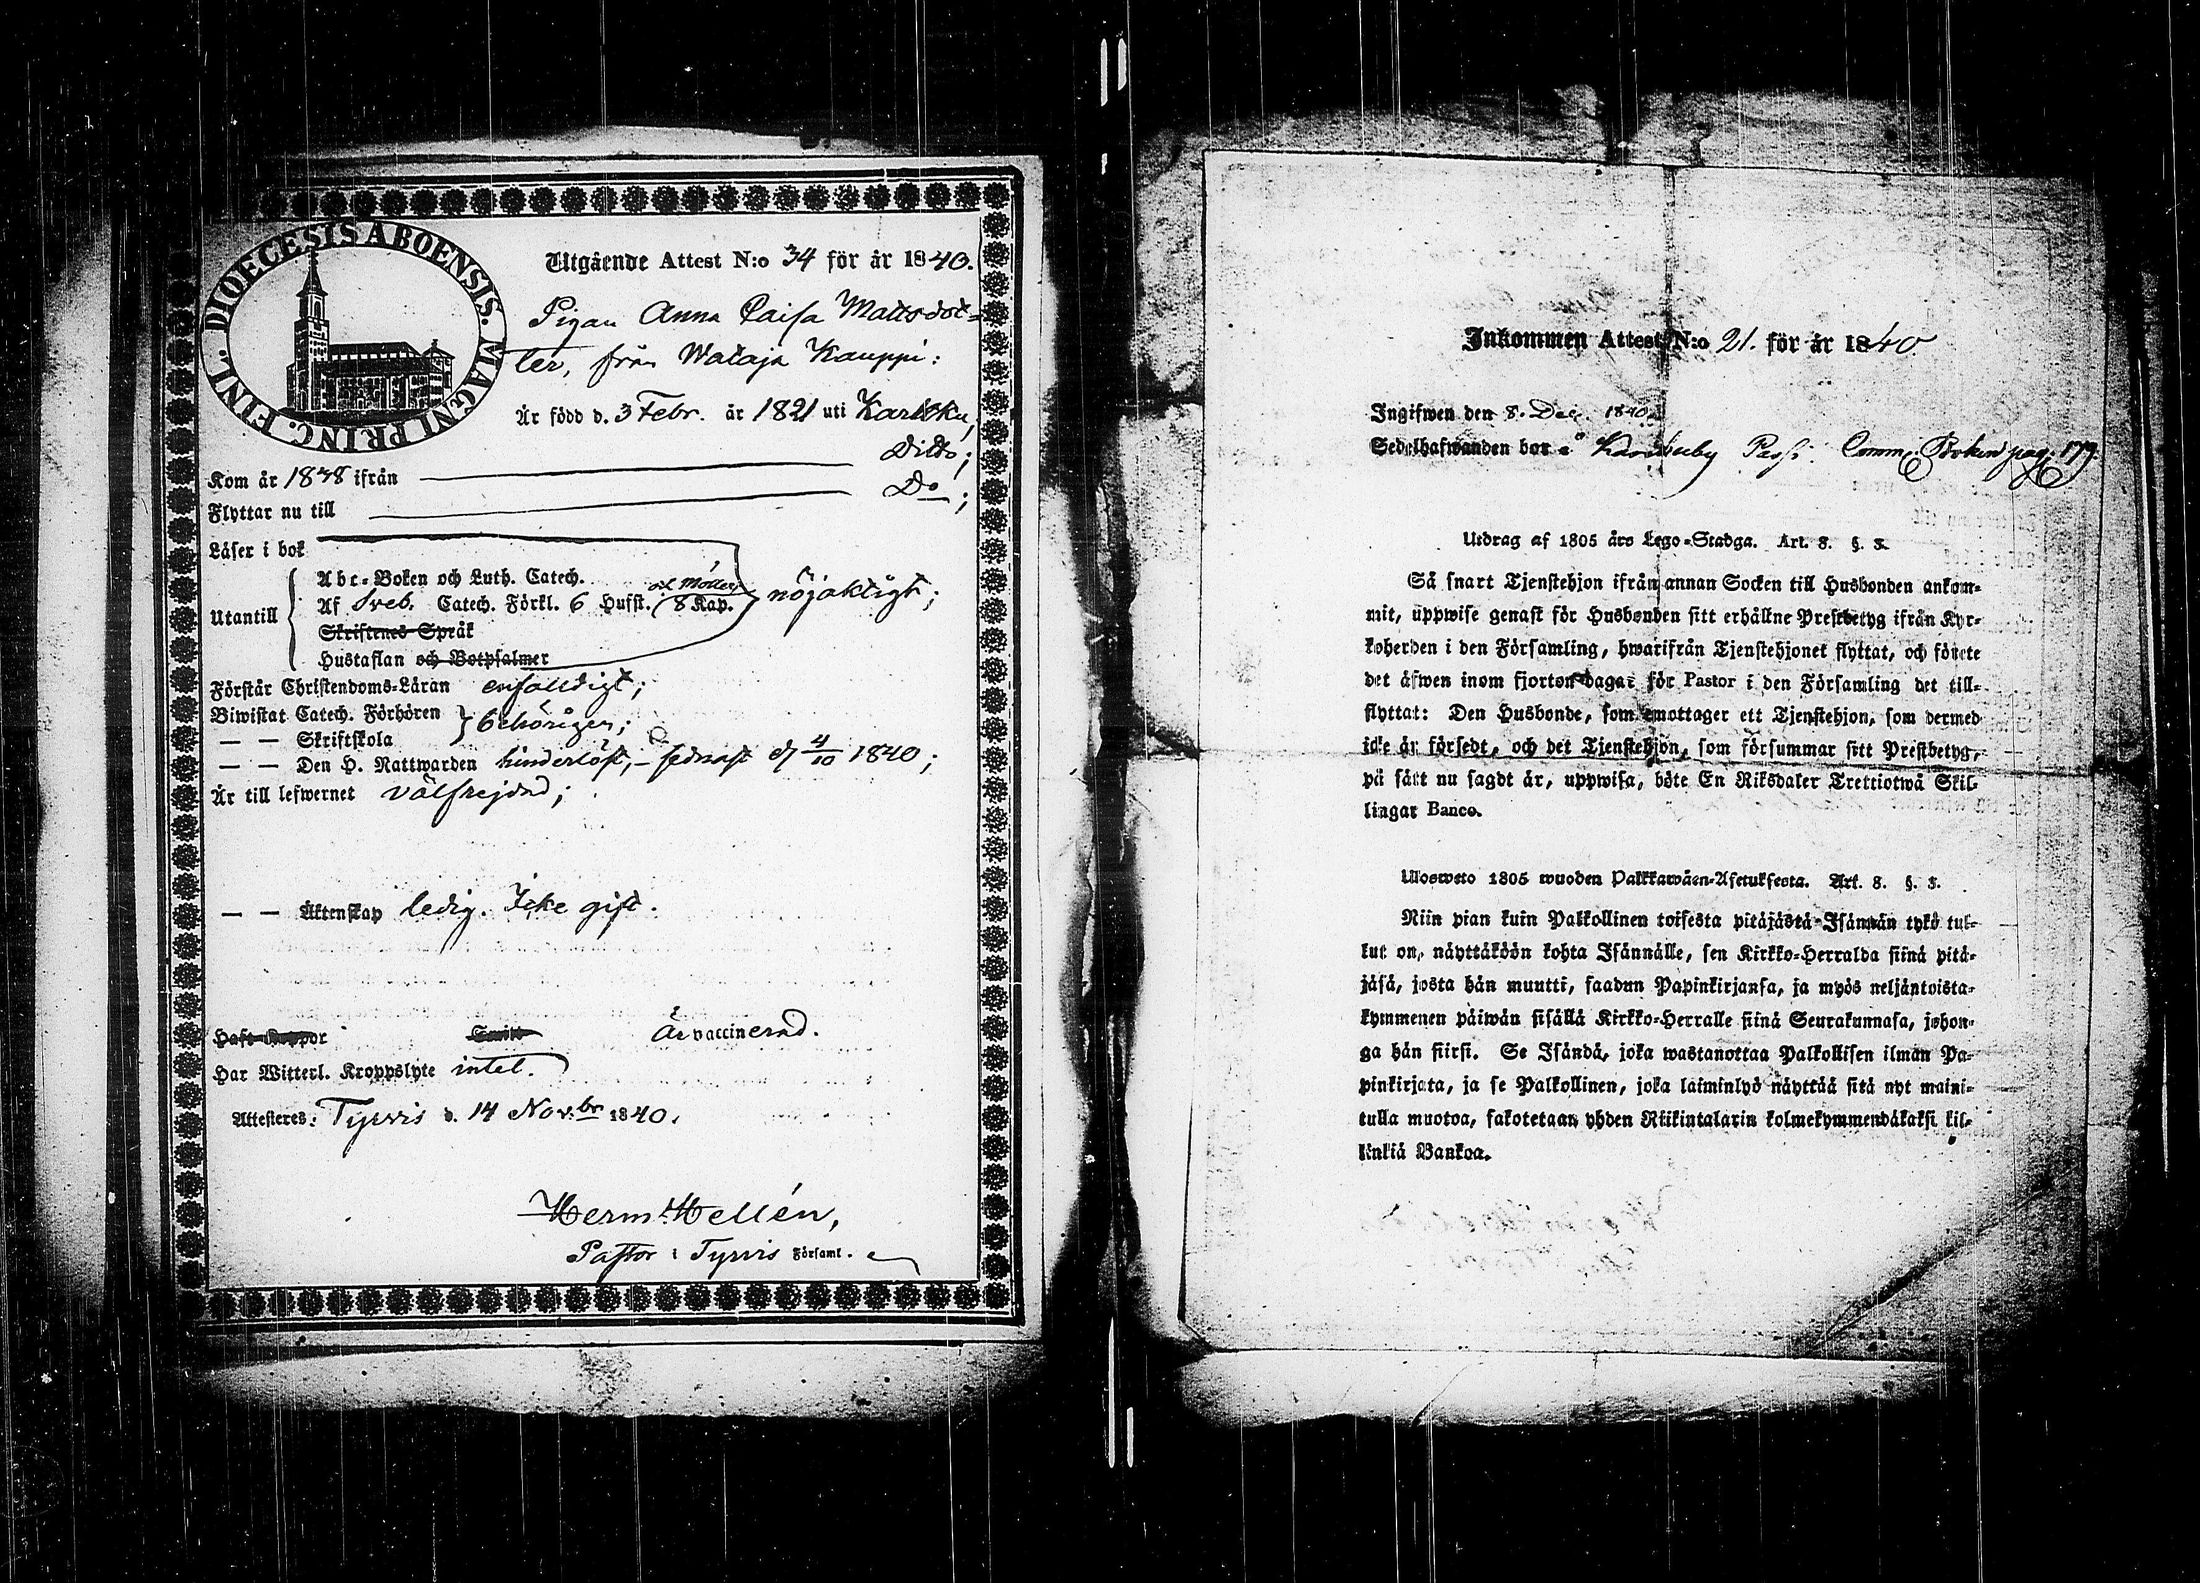 DIOECESIS ABOENSIS. MAGNI PRINC. FINL.
Utgående Attest N:o 34 för år 1840.
Pigan Anna Caisa Mattsdot-
ter, från Wataja Kauppi:
Är född d. 3 Febr. år 1821 uti Karkku,
Kom år 1838 ifrån Ditto;
Flyttar nu till Do;
Läser i bok
Abc-Boken och Luth. Catech.
Utantill Af Sveb. Catech. Förkl. 6 Hufst. 8 Kap. nöjaktigt;
Skriftenes Språk
Hustaflan och Botpsalmer
Förstår Christendoms-Läran enfaldigt;
Biwistat Catech. Förhören behörigen;
— — Skriftskola
— — Den H. Nattwarden hinderlöst, – sednast d 4/10 1840;
Är till lefwernet välfrejdad;
— — Äktenskap ledig. Icke gift.
Haft Koppor Är vaccinerad.
Har Witterl. Kroppslyte intet.
Attesteres: Tyrvis d. 14 Nov:br 1840.
Herm: Hellén,
Pastor i Tyrvis Församl.
Inkommen Attest N:o 21. för år 1840.
Ingifwen den 8. Dec. 1840.
Sedelhafwanden bor å Karkuby Passi. Comm. Boken pag: 177.
Utdrag af 1805 års Lego-Stadga. Art. 8. §. 3.
Så snart Tjenstehjon ifrån annan Socken till Husbonden ankom-
mit, uppwise genast för Husbonden sitt erhållne Prestbetyg ifrån Kyr-
koherden i den Församling, hwarifrån Tjenstehjonet flyttat, och förete
det äfwen inom fjorton dagar för Pastor i den Församling det till-
flyttat: Den Husbonde, som emottager ett Tjenstehjon, som dermed
icke är försedt, och det Tjenstehjon, som försummar sitt Prestbetyg,
på sätt nu sagdt är, uppwisa, böte En Riksdaler Trettiotwå Skil-
lingar Banco.
Ulosweto 1805 wuoden Palkkawäen-Asetuksesta. Art. 8. §. 3.
Niin pian kuin Palkollinen toisesta pitäjästä Isännän tykö tul-
lut on, näyttäköön kohta Isännälle, sen Kirkko-Herralda siinä pitä-
jäsä, josta hän muutti, saadun Papinkirjansa, ja myös neljäntoista-
kymmenen päiwän sisällä Kirkko-Herralle siinä Seurakunnasa, johon-
ga hän siirsi. Se Isändä, joka wastanottaa Palkollisen ilman Pa-
pinkirjata, ja se Palkollinen, joka laiminlyö näyttää sitä nyt maini-
tulla muotoa, sakotetaan yhden Riikintalarin kolmekymmendäkaksi kil-
linkiä Bankoa.